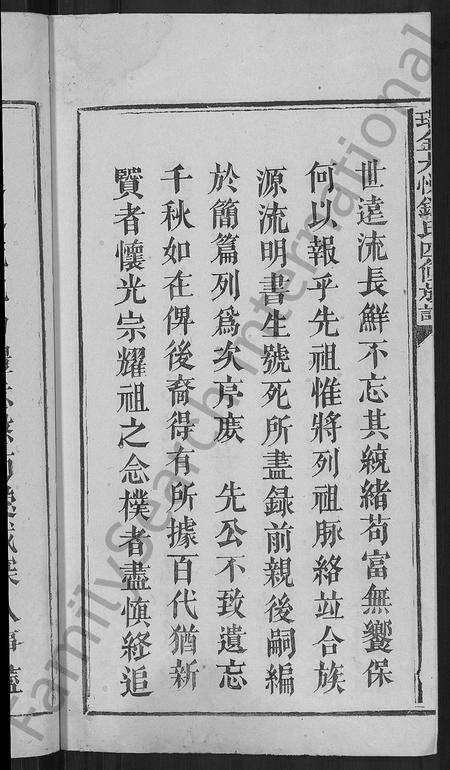 世遠流長鮮不忘其統緒苟富無饗保
何以報乎先祖惟將列祖脈絡竝合族
源流明書生號死所盡録前親後嗣編
於簡篇列爲次序庶　先公不致遺忘
千秋如在俾後裔得有所據百代猶新
賢者懷光宗耀祖之念樸者盡慎終追
鍾氏四修族譜
FamilySearch International